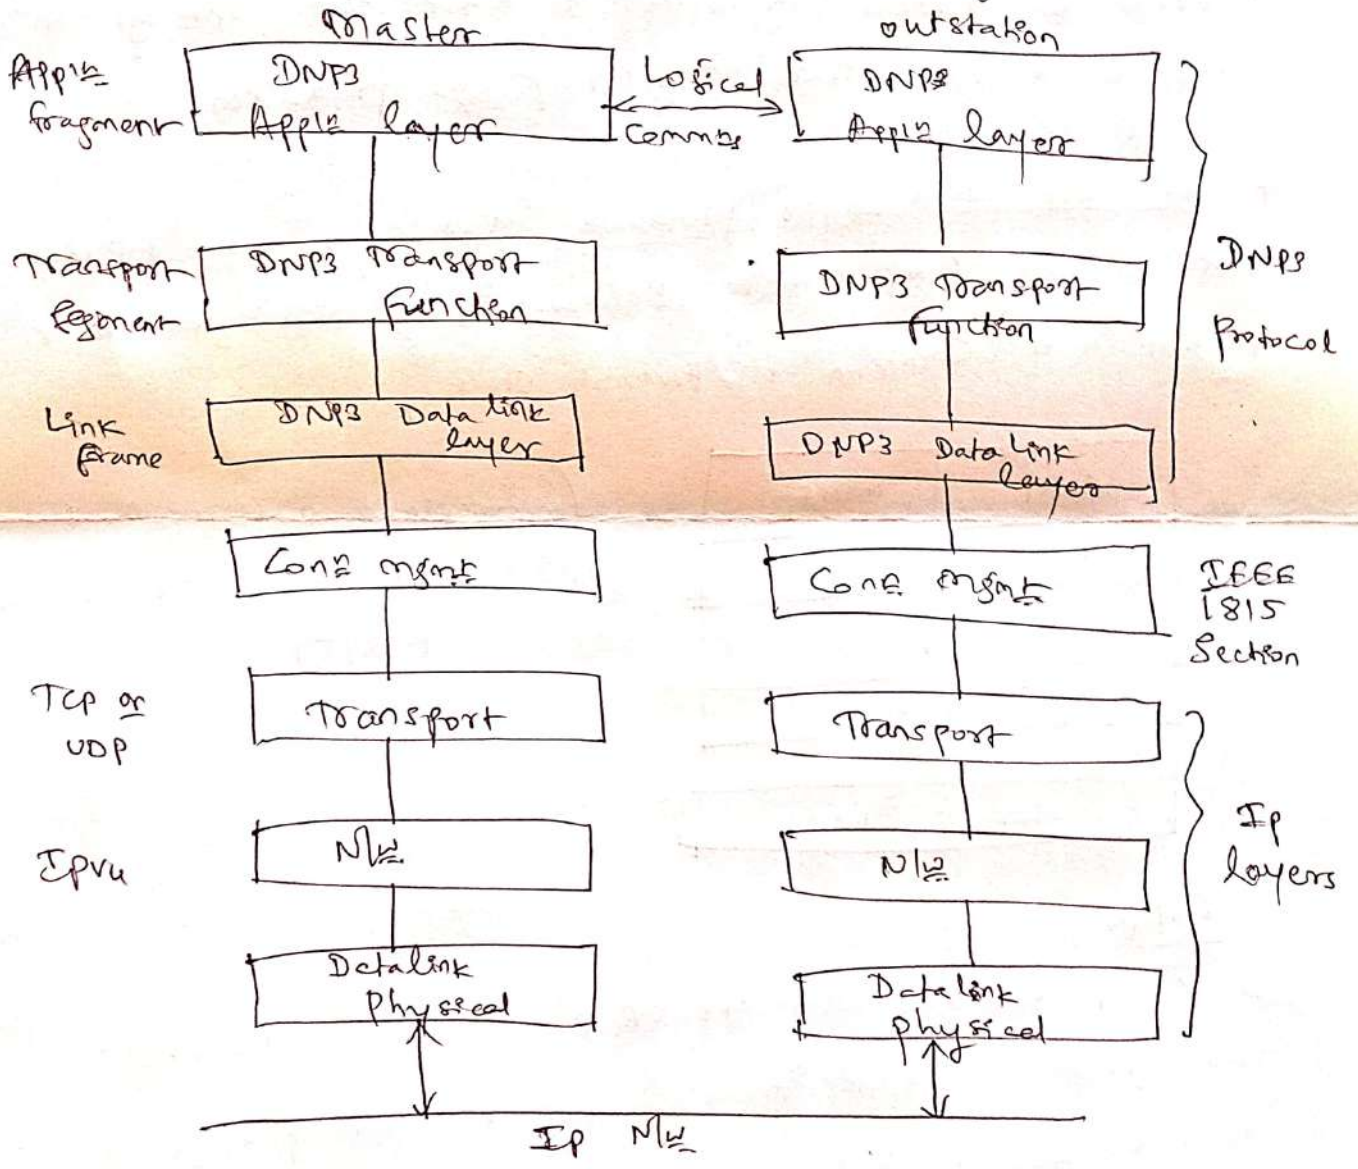 Master
outstation
Appln
fragment
DNP3
Appln layer
Logical
Comms
DNP3
Appln layer
Transport
Segment
DNP3 Transport
Function
DNP3 Transport
Function
DNP3
Protocol
Link
frame
DNP3 Data link
layer
DNP3 Data Link
layer
Conn mgmt
Conn Mgmt
IEEE
1815
Section
TCP or
UDP
Transport
Transport
IPV4
N/w
N/w
Ip
layers
Datalink
Physical
Datalink
physical
Ip N/w